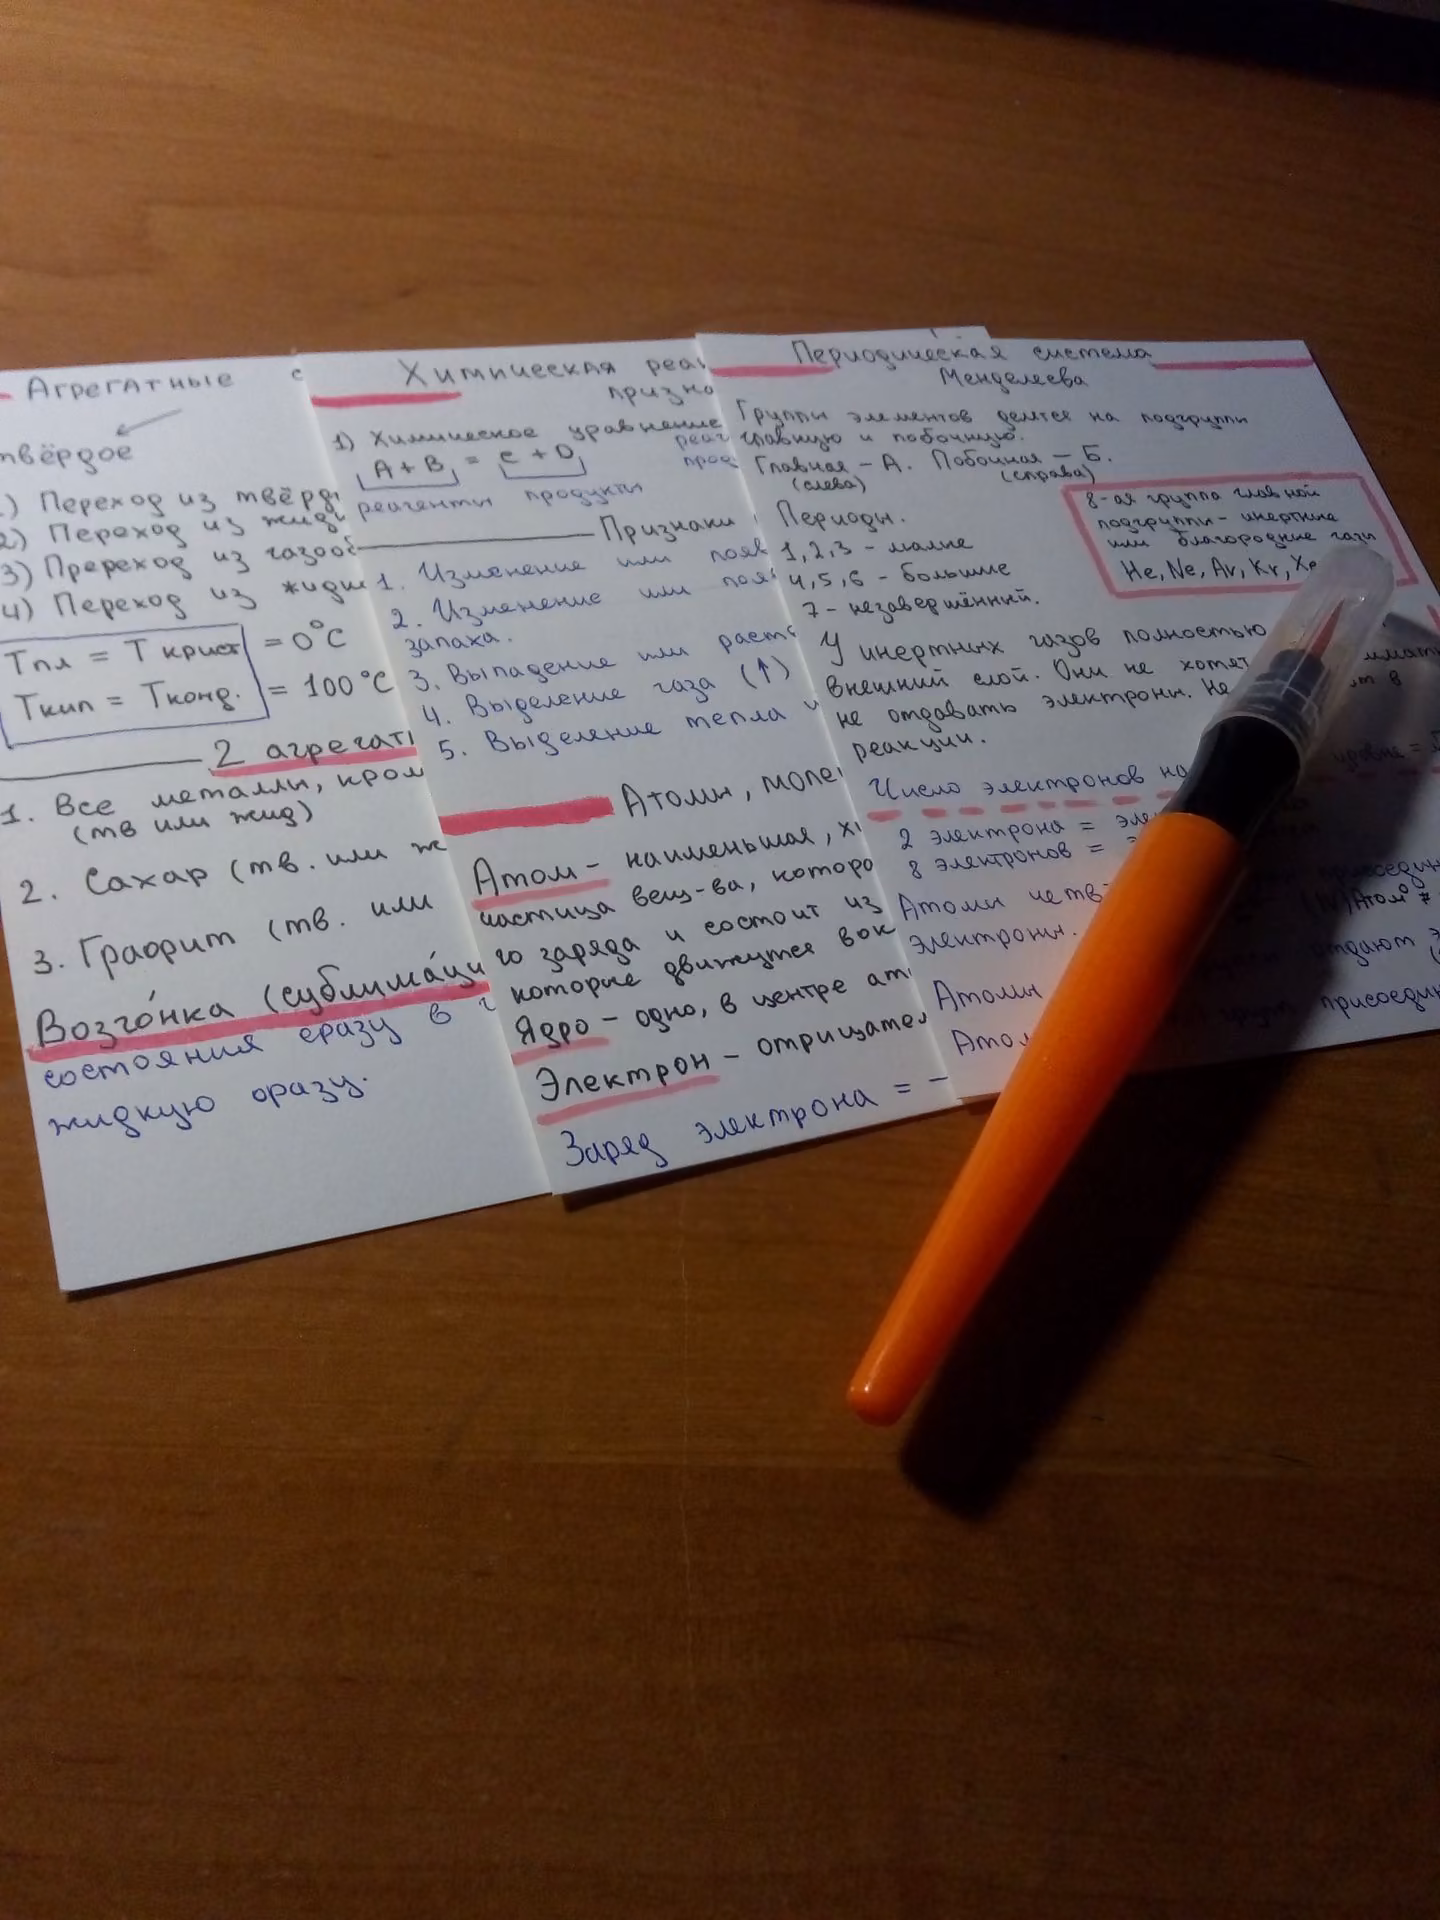 Агрегатные с
твёрдое
1) Переход из твёрд
2) Переход из жидк
3) Преред из газооб
4) Переход из жидк
Тпл = Т крист = 0°С
Ткип = Тконд. = 100°С
2 агрегатн
1. Все металлы, кром
(тв или жид)
2. Сахар (тв. или ж
3. Графит (тв. или
Возго́нка (сублима́ци
состояния сразу в г
жидкую фразу.
Химическая реак
призна
1) Химическое уравнение
A + B = C + D
реаг
прод
реагенты продукты
Признаки
1. Изменение или появ
2. Изменение или появ
запаха.
3. Выпадение или раств
4. Выделение газа (↑)
5. Выделение тепла и
Атомы, молек
Атом – наименьшая, хи
частица вещ-ва, которо
го заряда и состоит из
которые движутся вок
Ядро – одно, в центре ат
Электрон – отрицател
Заряд электрона = –
Периодическая система
Менделеева
Группы элементов делятся на подгруппы
главную и побочную.
Главная – А. Побочная – Б.
(слева) (справа)
Периоды.
1,2,3 – малые
4,5,6 – большие
7 – незавершённый.
8-ая группа главной
подгруппы – инертные
или благородные газы
He, Ne, Ar, Kr, Xe
У инертных газов полностью
внешний слой. Они не хотят
не отдавать электроны. Не в
реакции.
Число электронов на уровне =
2 электрона = эле
8 электронов = э
Атомы четв присоедин
(IV) Атом
электроны.
Атомы отдают э
Атом присоедин